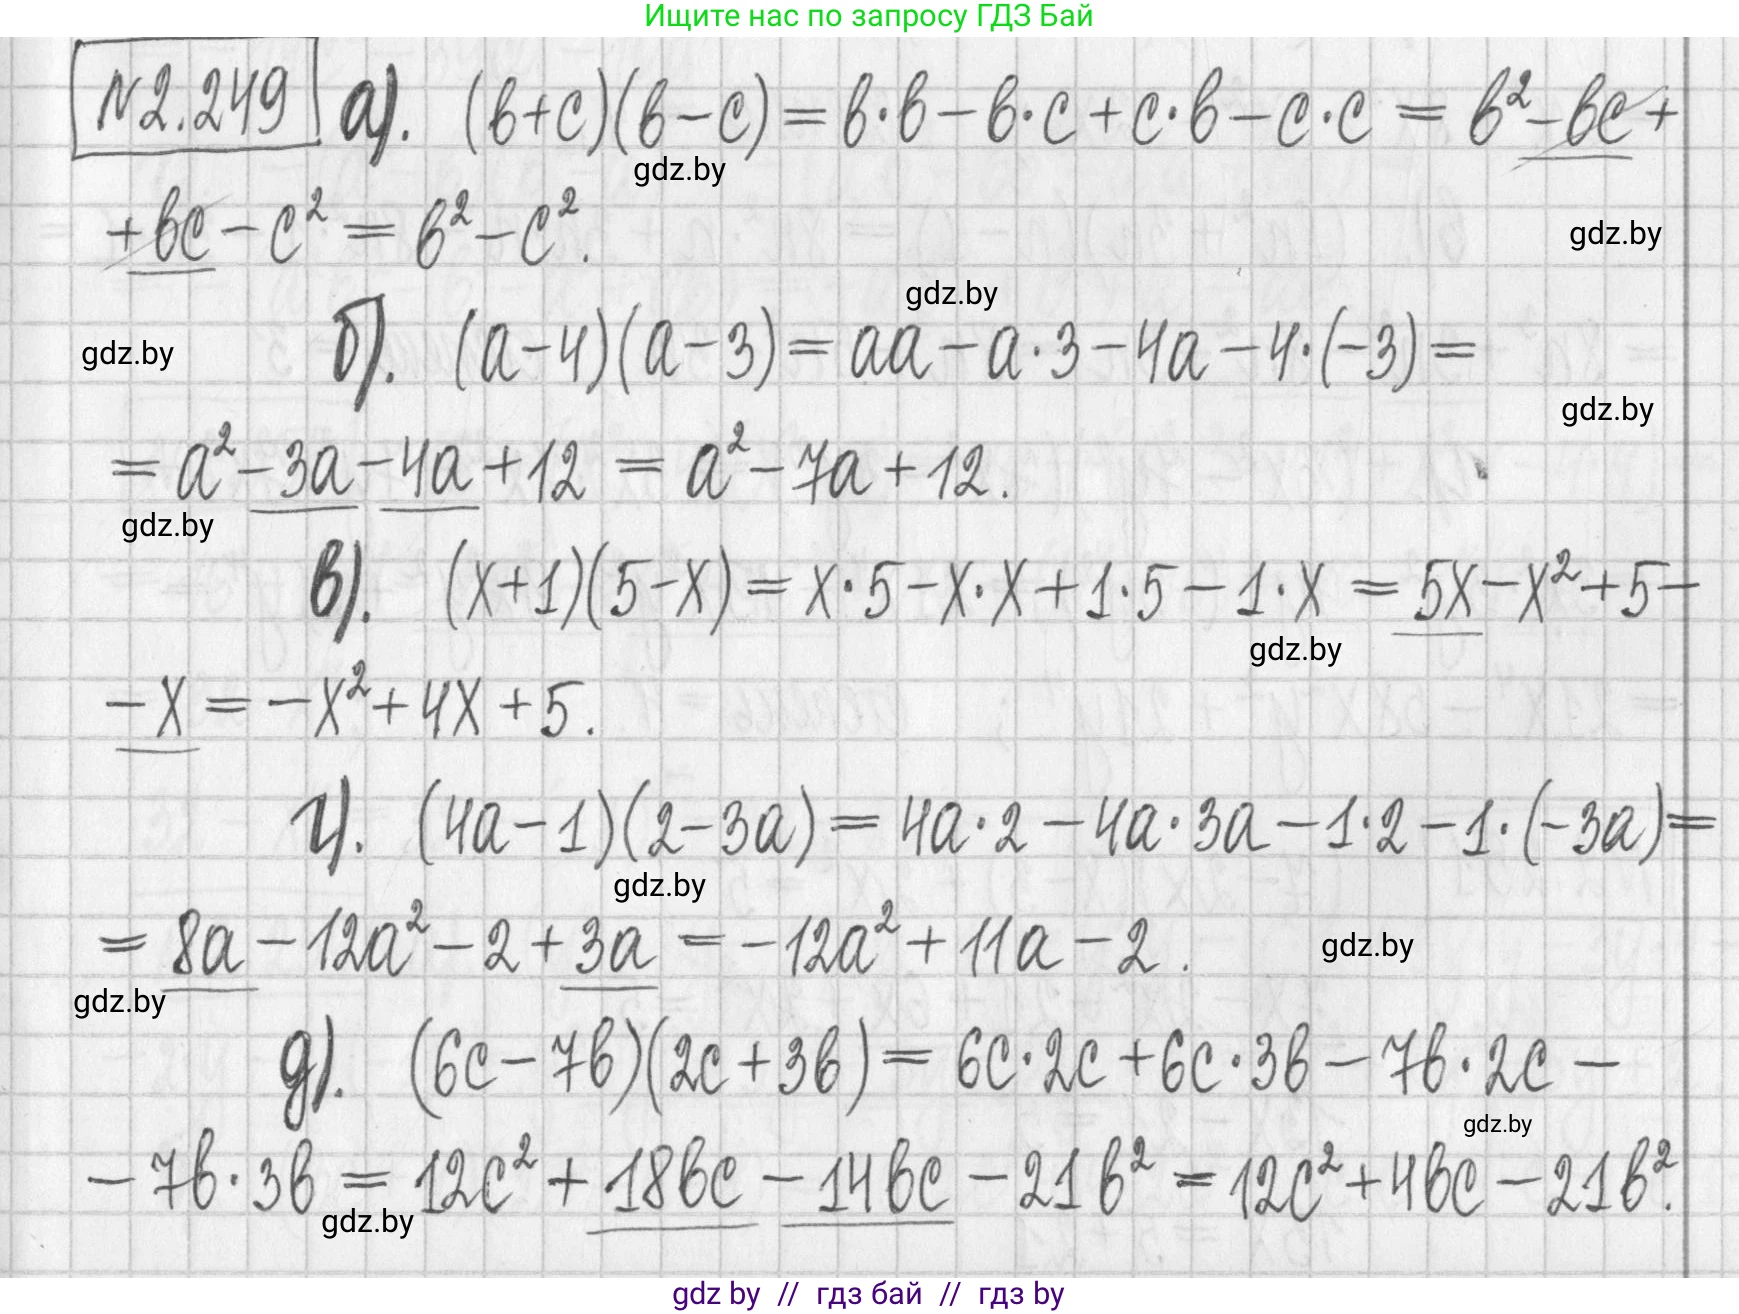 Ищите нас по запросу ГДЗ Бай
№2.249 а). (b+c)(b-c) = b·b - b·c + c·b - c·c = b² - bc +
gdz.by
+ bc - c² = b² - c².
gdz.by
gdz.by
gdz.by
б). (a-4)(a-3) = aa - a·3 - 4a - 4·(-3) =
gdz.by
= a² - 3a - 4a + 12 = a² - 7a + 12.
gdz.by
в). (x+1)(5-x) = x·5 - x·x + 1·5 - 1·x = 5x - x² + 5 -
gdz.by
- x = -x² + 4x + 5.
г). (4a-1)(2-3a) = 4a·2 - 4a·3a - 1·2 - 1·(-3a) =
gdz.by
= 8a - 12a² - 2 + 3a = -12a² + 11a - 2.
gdz.by
gdz.by
д). (6c-7b)(2c+3b) = 6c·2c + 6c·3b - 7b·2c -
gdz.by
- 7b·3b = 12c² + 18bc - 14bc - 21b² = 12c² + 4bc - 21b².
gdz.by
gdz by // гдз бай // гдз by